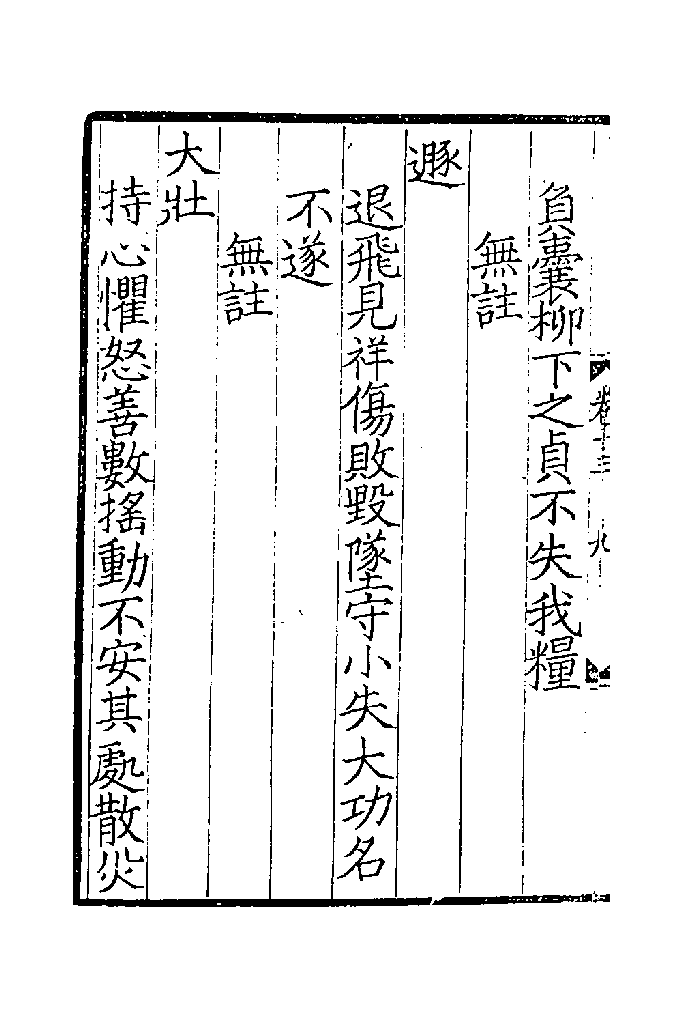 卷十三 九
負囊柳下之貞不失我糧
無註
遯
退飛見祥傷敗毀墜守小失大功名
不遂
無註
大壯
持心懼怒善數搖動不安其處散渙